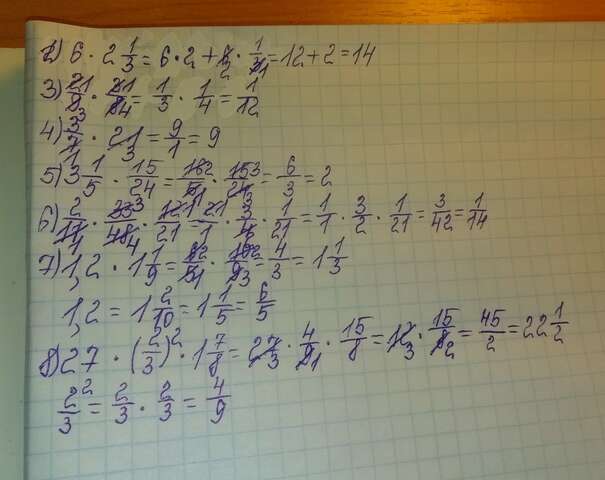 2) 6 · 2 1/3 = 6 · 2 + 6 2 · 1/3 1 = 12 + 2 = 14
3) 2 1/9 3 · 3 1/8 4 = 1/3 · 1/4 = 1/12
4) 3/7 1 · 21 3 = 9/1 = 9
5) 3 1/5 · 15/24 = 16 2/5 1 · 15 3/24 3 = 6/3 = 2
6) 2/11 1 · 33 3/48 4 · 121/21 = 21/1 · 3/4 · 1/21 = 1/1 · 3/2 · 1/21 = 3/42 = 1/14
7) 1,2 · 1 1/9 = 6 2/5 1 · 10 2/9 3 = 4/3 = 1 1/3
1,2 = 1 2/10 = 1 1/5 = 6/5
8) 27 · (2/3)² · 1 7/8 = 27 3 · 4/9 1 · 15/8 = 12 3 · 15/8 2 = 45/2 = 22 1/2
2²/3 = 2/3 · 2/3 = 4/9